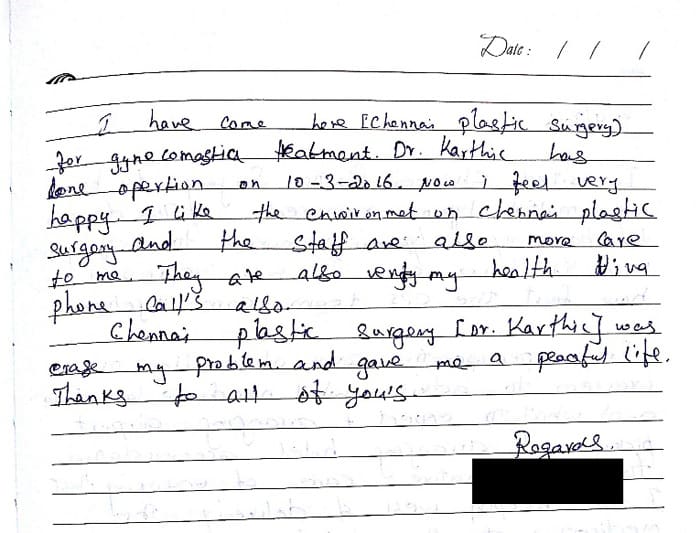 Date: / / /
I have come here [Chennai plastic surgery)
for gynecomastica treatment. Dr. Karthic has
done opertion on 10-3-2016. Now i feel very
happy. I like the enviironmet on chennai plastic
surgery and the staff are also more care
to me. They are also verify my health viva
phone call's also.
Chennai plastic surgery [Dr. Karthic] was
erase my problem. and gave me a peaceful life.
Thanks to all of your's.
Regards.